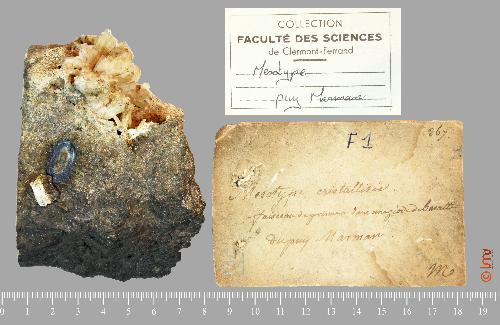 COLLECTION
FACULTÉ DES SCIENCES
de Clermont-Ferrand
Mesotype
puy Marman
F1
367
Mesotype cristallisée.
faisceau de prismes dans une géode de basalte
du puy Marman.
M
0 1 2 3 4 5 6 7 8 9 10 11 12 13 14 15 16 17 18 19